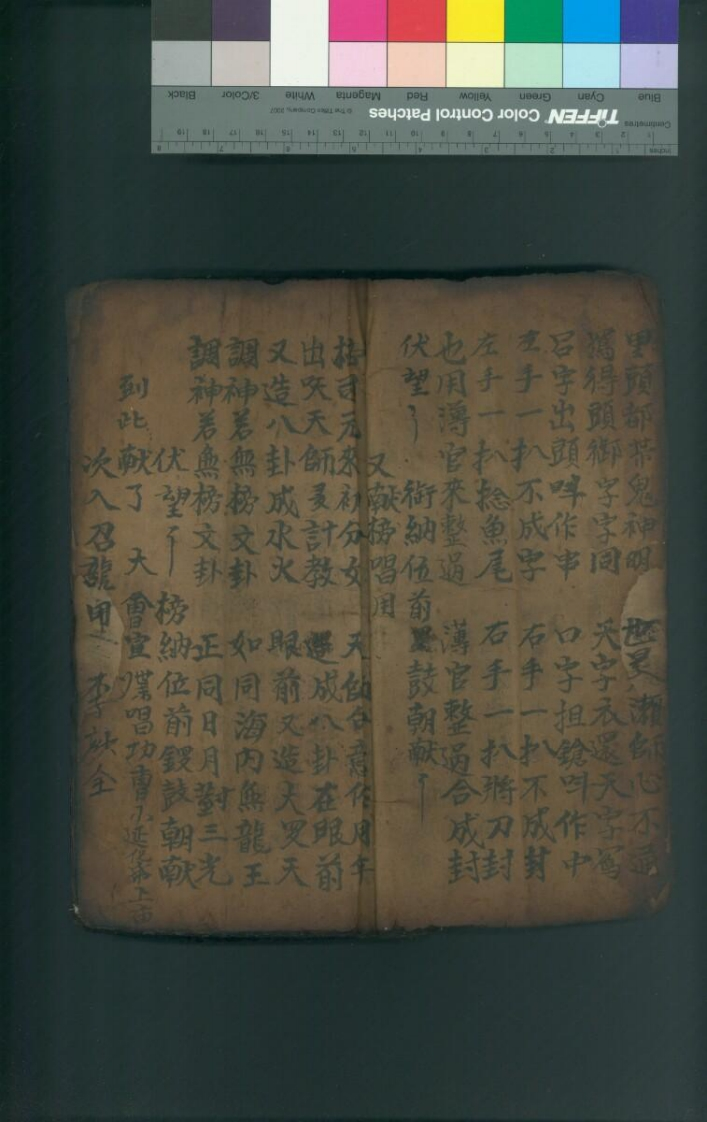 里頭部茶鬼神明 瀨師心不通
獲得頭鄉字字同 天字衣還天字寫
呂字出頭呌作串 口字扭鎗呌作中
左手一扒不成字 右手一扒不成封
左手一扒捻魚尾 右手一扒將刀封
也用薄官來整過 薄官整過合成封
伏望 衙納伍前 鼓朝献
又献榜唱用
元來初分女 天師合意作用年
出 天天師多計教 還成八卦在眼前
又造八卦成水火 眼前又造大罗天
調神若無榜文卦 如同海内無龍王
調神若無榜文卦 正同日月對三光
伏望 榜納位前鑼鼓朝献
到此献了 大會宣 唱功曹
次入召龍用 李 全
TIFFEN Color Control Patches
© The Tiffen Company, 2007
Blue Cyan Green Yellow Red Magenta White 3/Color Black
Centimetres
Inches